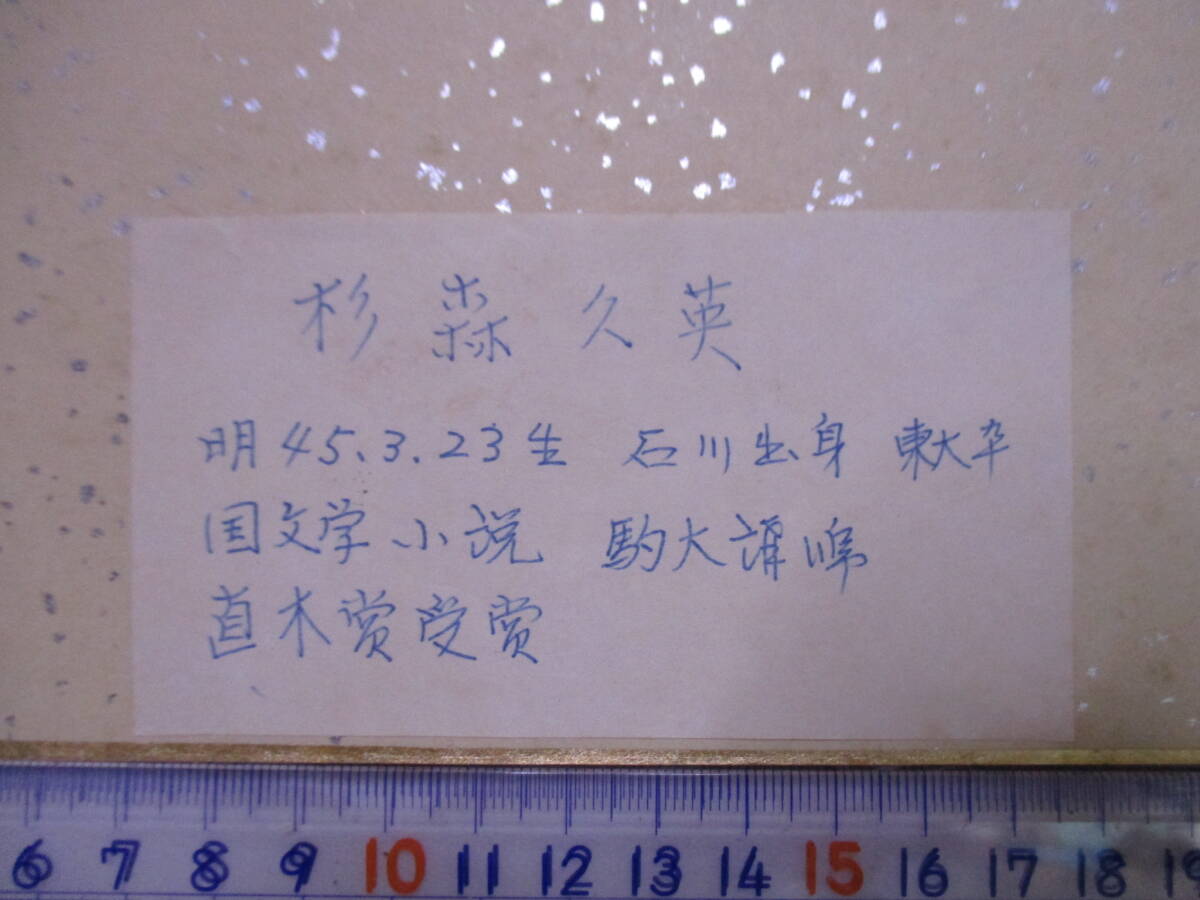 杉森久英
明45.3.23生 石川出身 東大卆
国文学 小説 駒大講師
直木賞受賞
6 7 8 9 10 11 12 13 14 15 16 17 18 19